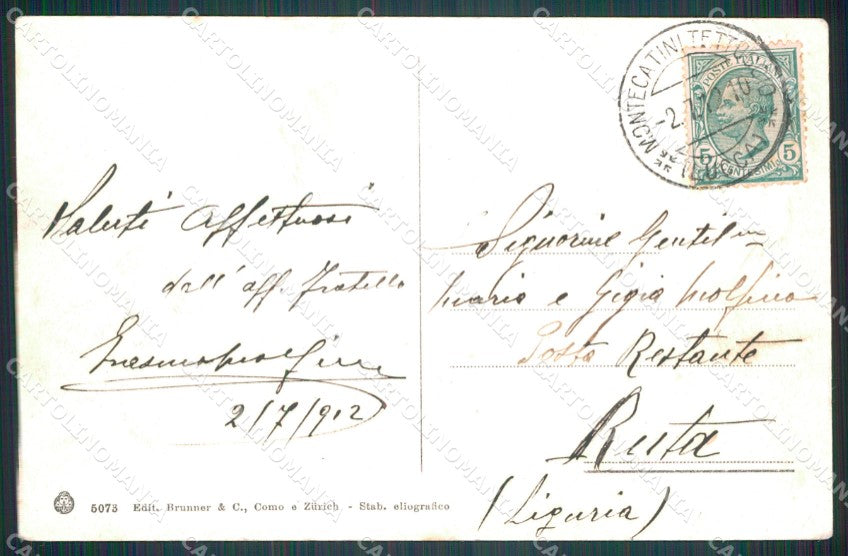 Saluti Affettuosi
dall' aff. fratello
Erasmo Molfino
2/7/912
5073 Edit. Brunner & C., Como e Zürich - Stab. eliografico
MONTECATINI TETTUCCIO
2.7.12
POSTE ITALIANE
5 CENTESIMI 5
Signorine Gentil.me
Maria e Gigia Molfino
Posta Restante
Ruta
(Liguria)
CARTOLINOMANIA